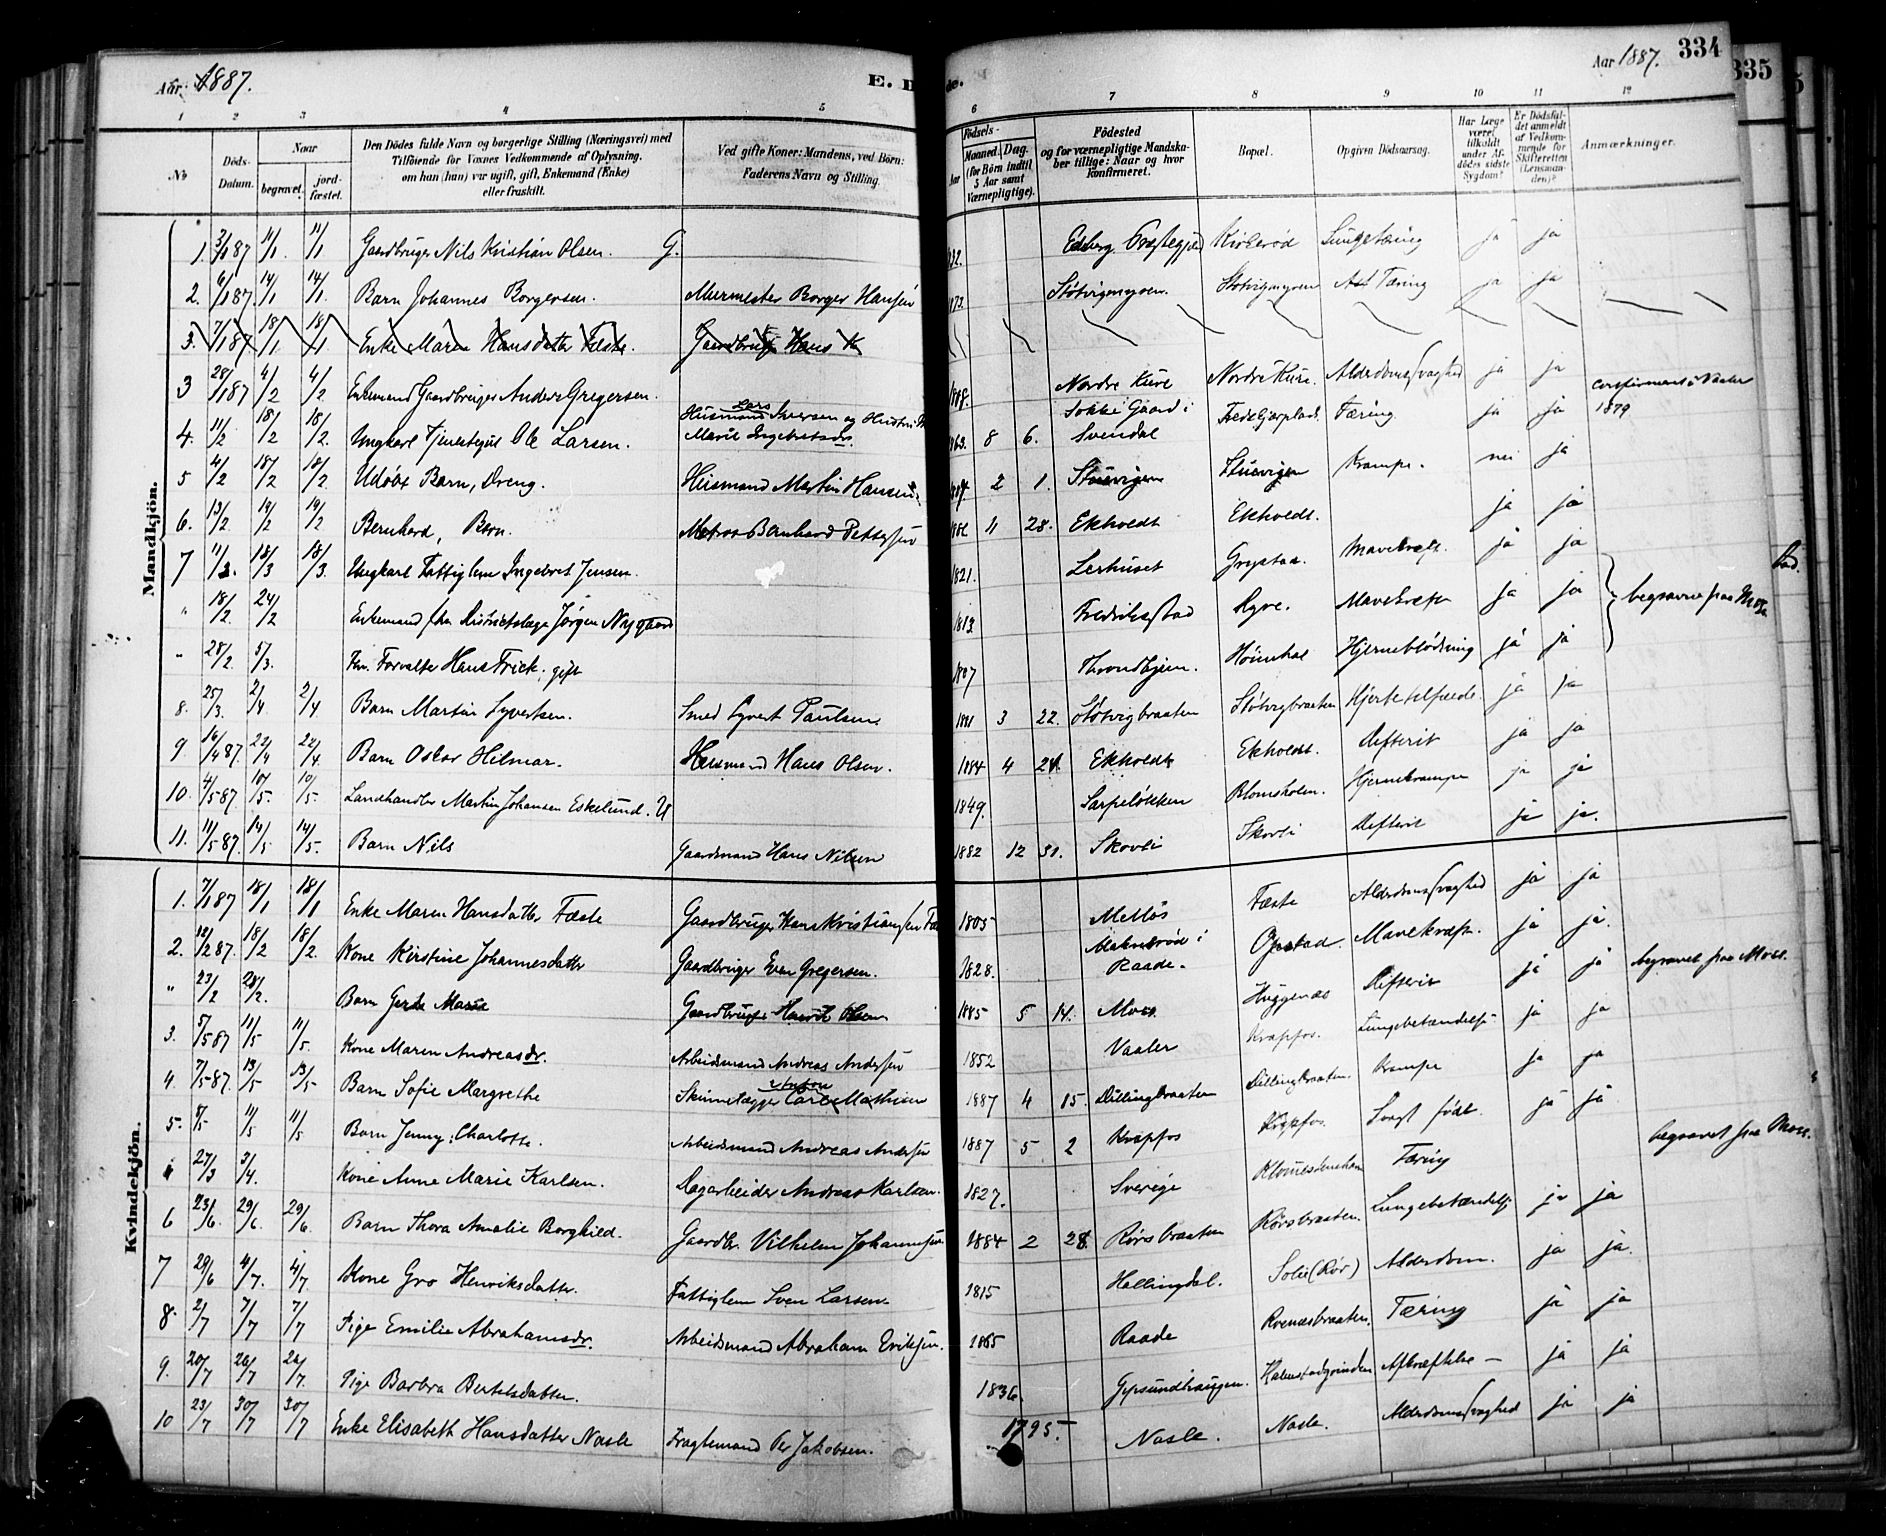 Aar 1887.
E. D
de.
Aar 1887.
334
335
1 2 3 4 5 6 7 8 9 10 11 12
No
Döds-Datum.
Naar
begravet.
jord-fæstet.
Den Dödes fulde Navn og borgerlige Stilling (Næringsvei) med
Tilföiende for Voxnes Vedkommende af Oplysning.
om han (hun) var ugift, gift, Enkemand (Enke)
eller fraskilt.
Ved gifte Koner: Mandens, ved Börn:
Faderens Navn og Stilling.
Födsels-
Aar
Maaned. Dag.
(for Börn indtil
5 Aar samt
Værnepligtige).
Födested
og for værnepligtige Mandska-
ber tillige: Naar og hvor
konfirmeret.
Bopæl.
Opgiven Dödsaarsag.
Har Læge
været
tilkaldt
under Af-
dödes sidste
Sygdom?
Er Dödsfal-
det anmeldt
af Vedkom-
mende for
Skifteretten
(Lensman-
den)?
Anmærkninger.
Mandkjön.
1. 3/1 87 11/1. 11/1 Gaardbruger Nils Kristian Olsen. G. 832. Edsberg Præstegjeld Kirkerød Lungetæring ja ja
2. 6/1 87. 14/1 14/1. Barn Johannes Borgersen. Murmester Borger Hansen 1872. Støtvigmyren. Støtvigmyren Tæring ja ja
3. 7/1 87 18/1 18/1. Enke Maren Hansdatter Fæste. Gaardbruger Hans K
3 28/1 87 4/2 4/2 Enkemand Gaardbruger Anders Gregersen. 1808. Nordre Kure Nordre Kure. Alderdomssvaghed ja ja
4. 11/2 18/2 18/2. Ungkarl Tjenestegut Ole Larsen. Husmand Lars Iversen og Hustru Marie Ingebretsdr. 1863. 8 6. Gaard i Svendal Tæring. ja ja confirmert i Vaaler 1879
5 4/2 18/2 18/2 Udøbt Barn, Dreng. Husmand Martin Hansen. 1887. 2 1. Stuevigen Stuevigen Krampe. nei ja
6. 13/2 19/2 19/2 Bernhard, Barn. Matros Bernhard Pettersen 1886 11 28. Ekholdt Ekholdt. ja ja
7 11/3. 18/3 18/3. Ungkarl Fattiglem Ingebret Jensen. 1821. Lerhuset Grystad. Mavekræft. ja ja
" 18/2. 24/2 Enkemand fhv. Districtslæge Jørgen Nygaard 1813. Fredrikstad Rygge. Mavekræft ja ja begravne fra Moss
" 28/2. 5/3. Fhv. Forvalter Hans Frick. gift 1807 Throndhjem. Høienhal Hjerneblødning ja ja
8. 25/3. 2/4. 2/4 Barn Martin Syvertsen. Smed Syvert Paulsen 1881 3 22. Støtvigbraaten Støtvigbraaten Hjertetilfælde. ja ja
9. 16/4 87. 22/4 22/4. Barn Oskar Hilmar. Husmand Hans Olsen. 1884 4 24. Ekholdt Ekholdt. Difterit ja ja
10. 4/5 87 10/5. 10/5. Landhandler Martin Johansen Eskelund. U 1849. Sarpeløkken Blomsholm. Hjernekrampe ja ja
11. 11/5 87. 14/5 14/5. Barn Nils Gaardmand Hans Nilsen 1882 12 31. Skovli Skovli Difterit ja ja.
Kvindekjön.
1. 7/1 87 18/1 18/1 Enke Maren Hansdatter Fæste Gaardbruger Hans Kristiansen Fæ 1805 Melløs Fæste Alderdomssvaghed ja ja
2. 12/2 87. 18/2 18/2. Kone Kirstine Johannesdatter Gaardbruger Even Gregersen. 1828. i Raade. Opstad. Mavekræft. ja ja.
" 23/2 28/2. Barn Gerda Marie Gaardbruger Henrik Olsen 1885 5 14. Moss Huggenæs Difterit ja ja begravet fra Moss.
3. 5/5 87 11/5 11/5. Kone Maren Andreasdr. Arbeidsmand Andreas Andersen 1852 Vaaler Krapfos. Lungebetændelse ja ja
4. 7/5 87. 13/5 13/5 Barn Sofie Margrethe Skinnelægger Anton Carl Mathisen 1887 4 15. Dillingbraaten Dillingbraaten. Krampe ja ja
5. 8/5 11/5 11/5 Barn Jenny Charlotte. Arbeidsmand Andreas Andersen 1887 5 2 Krapfos Krapfos. Svagt født. ja ja
27/3 3/4. Kone Anne Marie Karlsen. Sagarbeider Andreas Karlsen. 1827. Sverige Tæring begravet fra Moss.
6 23/6. 29/6. 29/6. Barn Thora Amalie Borghild. Gaardbr. Vilhelm Johannesen 1884 2 28. Rørsbraaten Rørsbraaten. Lungebetændelse ja ja
7 29/6 4/7. 4/7 Kone Gro Henriksdatter. Fattiglem Sven Larsen 1815 Hallingdal. Solie (Rør) Alderdom. ja ja.
8. 2/7 7/7 7/7 Pige Emilie Abrahamsdr. Arbeidsmand Abraham Eriksen. 1865 Raade Roenæsbraaten. Tæring ja ja
9. 20/7 26/7 26/7. Pige Barbra Bertelsdatter. 1836 Gipsundhaugen. Halmstadgrinden Afkræftelse — ja ja
10 23/7 30/7 30/7 Enke Elisabeth Hansdatter Nasle Fragtemand Per Jakobsen. 1795. Nasle. Nasle. Alderdomssvaghed ja ja